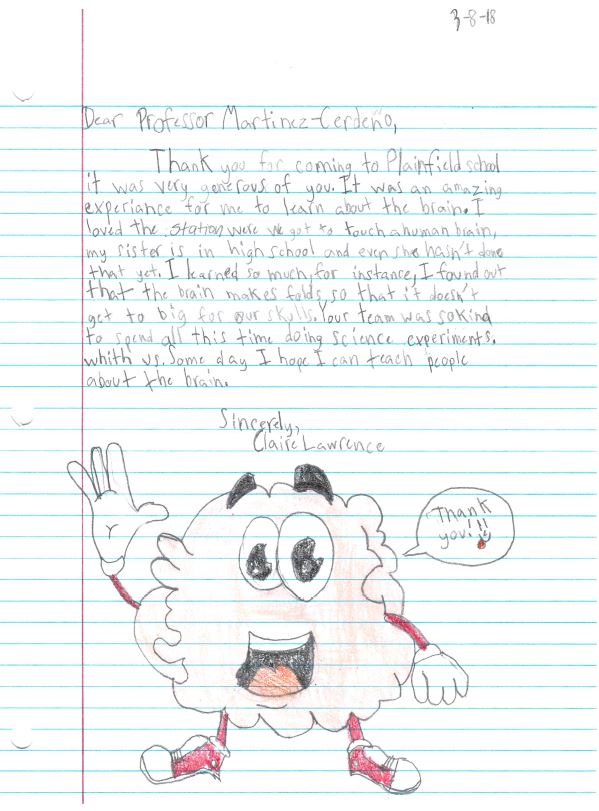 3-8-18
Dear Professor Martinez-Cerdeño,
Thank you for coming to Plainfield school
it was very generous of you. It was an amazing
experiance for me to learn about the brain. I
loved the station were we got to touch a human brain,
my sister is in high school and even she hasn't done
that yet. I learned so much, for instance, I found out
that the brain makes folds, so that it doesn't
get to big for our skulls. Your team was so kind
to spend all this time doing science experiments.
whith us. Some day I hope I can teach people
about the brain.
Sincerely,
Claire Lawrence
Thank
you!!!